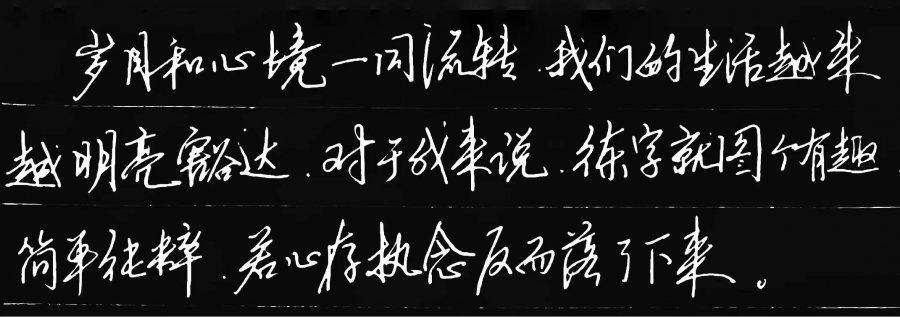 岁月和心境一同流转.我们的生活越来
越明亮豁达.对于我来说.练字就图个有趣.
简单纯粹.若心存执念反而落了下来。